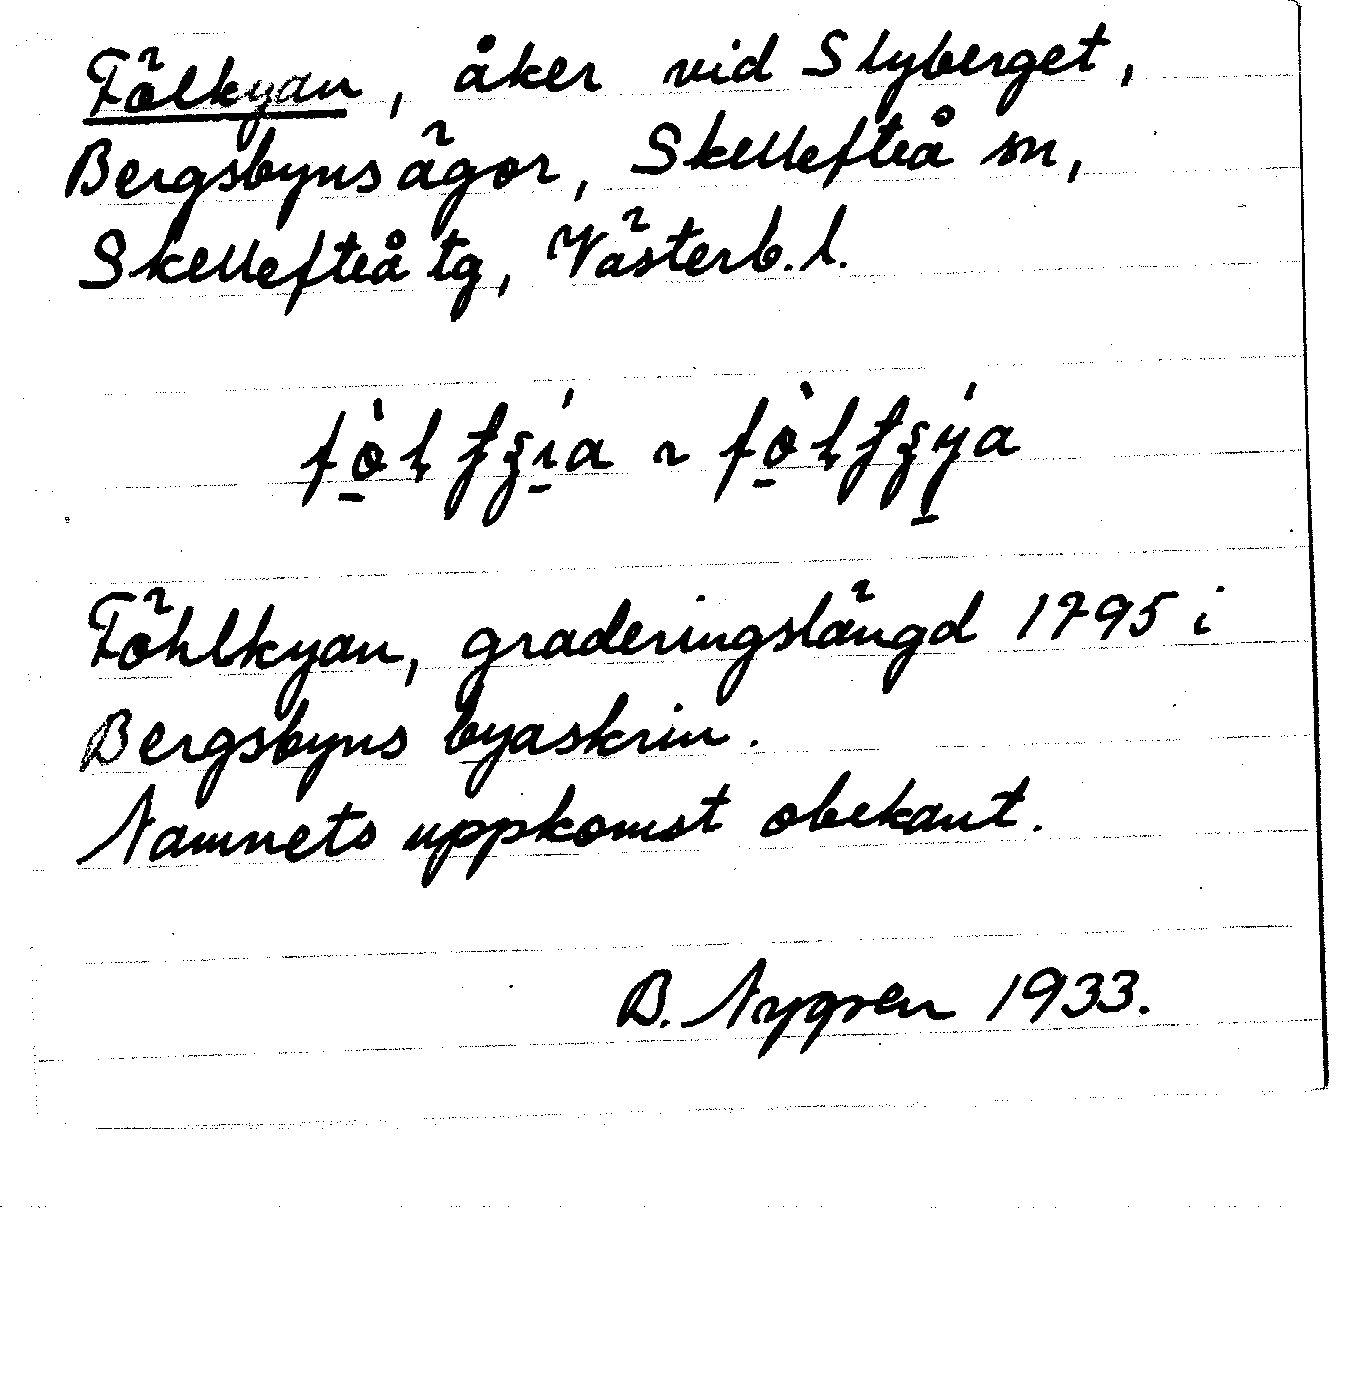 Fölkyan, åker vid Slyberget,
Bergsbyns ägor, Skellefteå sn,
Skellefteå tg, Västerb. l.
Föhlkyan, graderingslängd 1795 i
Bergsbyns byaskrin.
Namnets uppkomst obekant.
B. Nygren 1933.